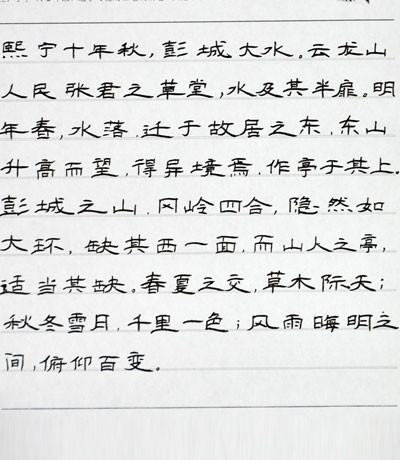 熙宁十年秋,彭城大水。云龙山
人民张君之草堂,水及其半扉。明
年春,水落.迁于故居之东,东山
升高而望,得异境焉,作亭于其上.
彭城之山.冈岭四合,隐然如
大环,缺其西一面,而山人之亭,
适当其缺。春夏之交,草木际天;
秋冬雪月.千里一色;风雨晦明之
间,俯仰百变。